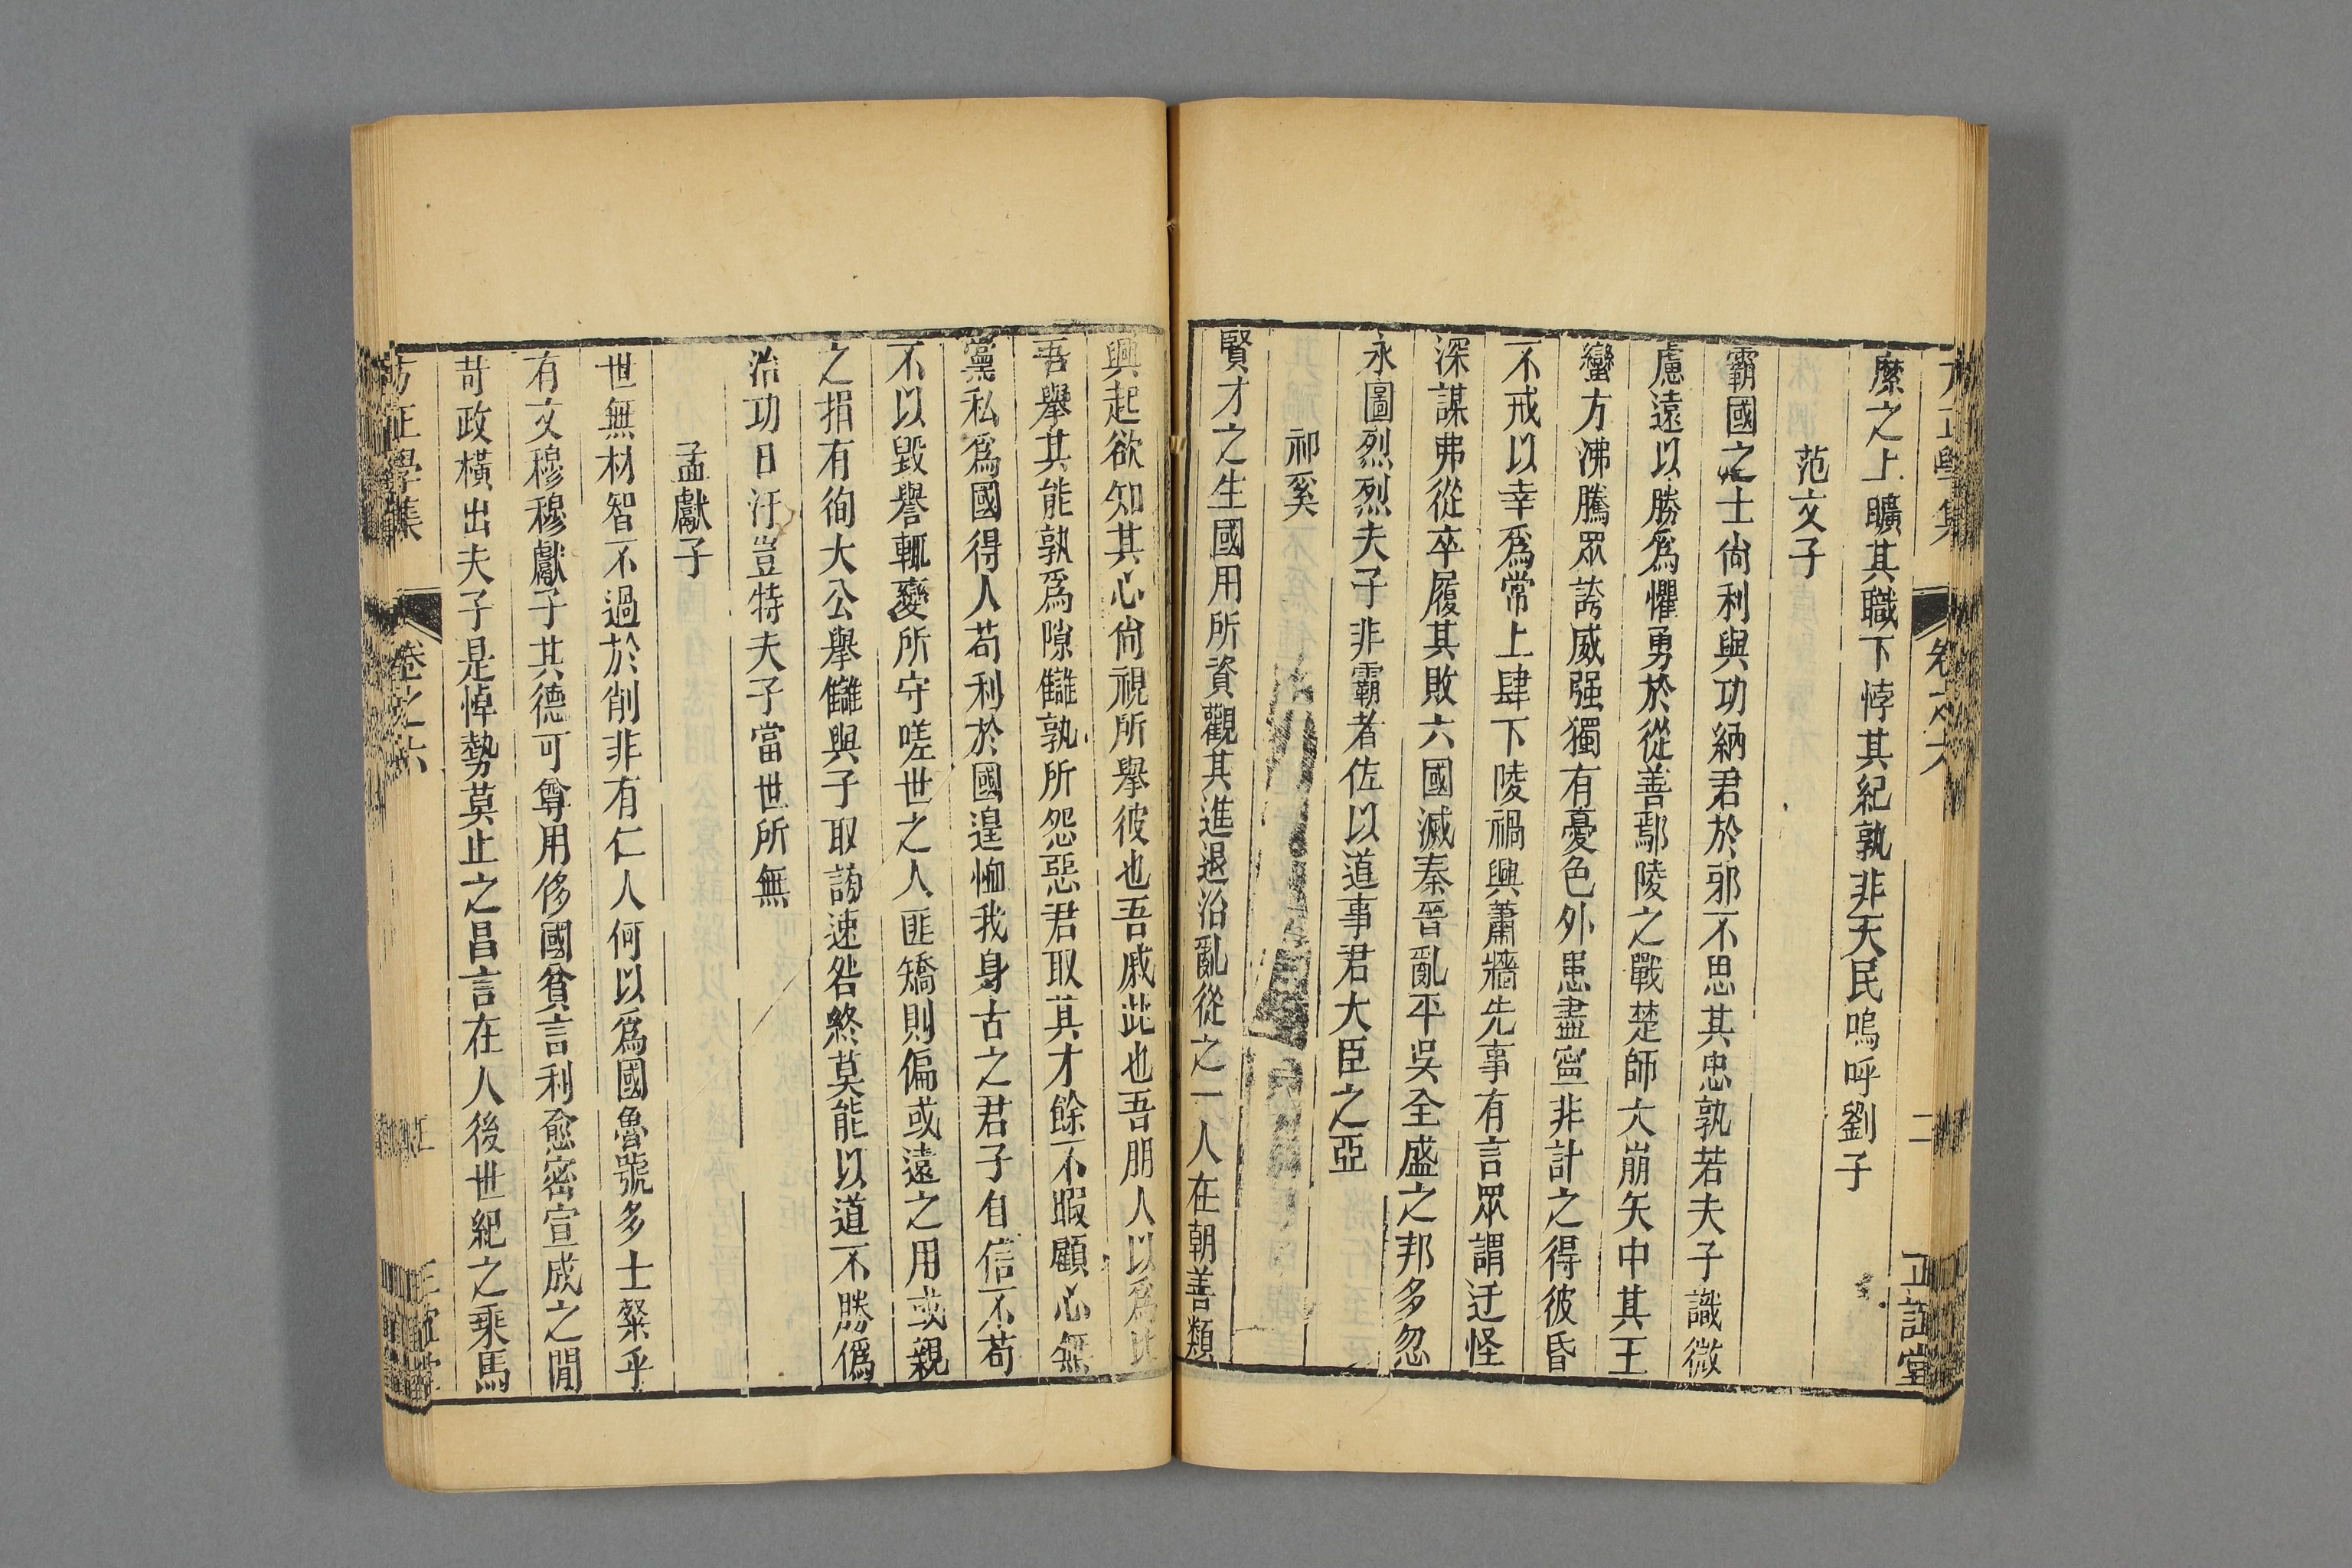 方正學集 卷之六 二 正誼堂
縻之上曠其職下悖其紀孰非天民嗚呼劉子
范文子
霸國之士尙利與功納君於邪不思其忠孰若夫子識微
慮遠以勝爲懼勇於從善鄢陵之戰楚師大崩矢中其王
蠻方沸騰眾誇威强獨有憂色外患盡寧非計之得彼昏
不戒以幸爲常上肆下陵禍興蕭牆先事有言眾謂迂怪
深謀弗從卒履其敗六國滅秦晉亂平吳全盛之邦多忽
永圖烈烈夫子非霸者佐以道事君大臣之亞
祁奚
賢才之生國用所資觀其進退治亂從之一人在朝善類
興起欲知其心尙視所舉彼也吾戚茈也吾朋人以爲比
吾舉其能孰爲隙讎孰所怨惡君取其才餘不暇顧心無
黨私爲國得人苟利於國遑恤我身古之君子自信不苟
不以毀譽輒變所守嗟世之人匪矯則偏或遠之用或親
之捐有徇大公舉讎與子取謗速咎終莫能以道不勝僞
治功日汙豈特夫子當世所無
孟獻子
世無材智不過於削非有仁人何以爲國魯號多士粲乎
有文穆穆獻子其德可尊用侈國貧言利愈密宣成之閒
苛政橫出夫子是悼勢莫止之昌言在人後世紀之乘馬
方正學集 卷之六 正誼堂